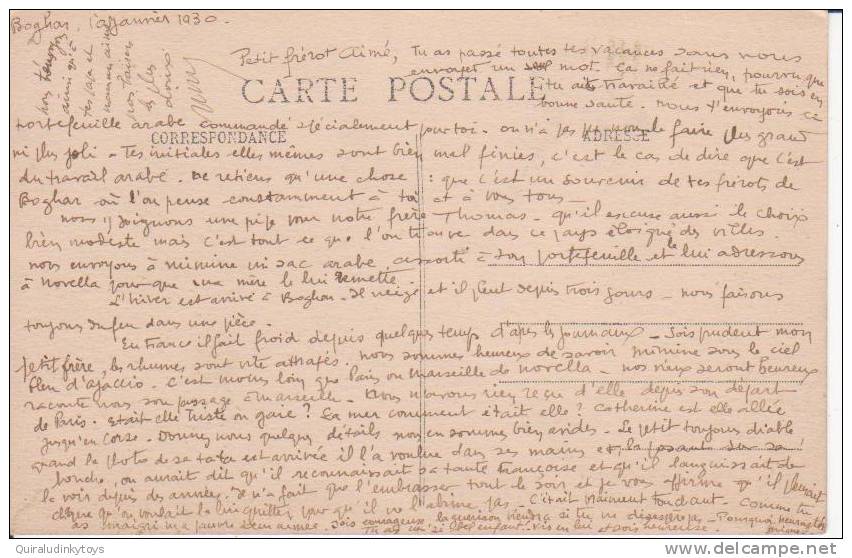 Boghar, janvier 1930.
Petit frérot Aimé, Tu as passé toutes tes vacances sans nous
envoyer un seul mot. Ça ne fait rien, pourvu que
tu aies travaillé et que tu sois en
bonne santé. Nous t'envoyons ce
CARTE POSTALE
portefeuille arabe commandé spécialement pour toi. on n'a pas pu le faire plus grand
CORRESPONDANCE
ADRESSE
ni plus joli. Tes initiales elles mêmes sont bien mal finies, c'est le cas de dire que c'est
du travail arabe. Ne retiens qu'une chose : que c'est un souvenir de tes frérots de
Boghar où l'on pense constamment à toi et à vous tous.
nous y joignons une pipe pour notre frère Thomas. qu'il excuse aussi le choix
bien modeste mais c'est tout ce que l'on trouve dans ce pays éloigné des villes.
nous envoyons à mimine un sac arabe assorti à son portefeuille et le lui adressons
à Novella pour que sa mère le lui remette.
L'hiver est arrivé à Boghar. Il neige et il pleut depuis trois jours. nous faisons
toujours du feu dans une pièce.
En France il fait froid depuis quelque temps d'après les journaux. Sois prudent mon
petit frère, les rhumes sont vite attrapés. nous sommes heureux de savoir mimine sous le ciel
bleu d'ajaccio. C'est moins loin que Paris ou Marseille de novella. nos vieux seront heureux
raconte nous son passage à marseille. Nous n'avons rien reçu d'elle depuis son départ
de Paris. Etait elle triste ou gaie? La mer comment était elle? Catherine est elle allée
jusqu'en Corse. Donnez nous quelques détails nous en sommes bien avides. Le petit toujours diable
quand la photo de sa tata est arrivée il l'a voulue dans ses mains et la sur sa
bouche, on aurait dit qu'il reconnaissait sa tante Françoise et qu'il languissait de
la voir depuis des années. Il n'a fait que l'embrasser tout le soir et je vous affirme qu'il pleurait
chaque qu'on voulait la lui pour qu'il ne l'abîme pas. C'était vraiment tordant. Comme tu
as maigri ma pauvre soeur aimée. Sois courageuse, la guérison viendra si tu ne désespères pas. Pourquoi
Tu as un si bel enfant. Vis en lui et sois heureuse.